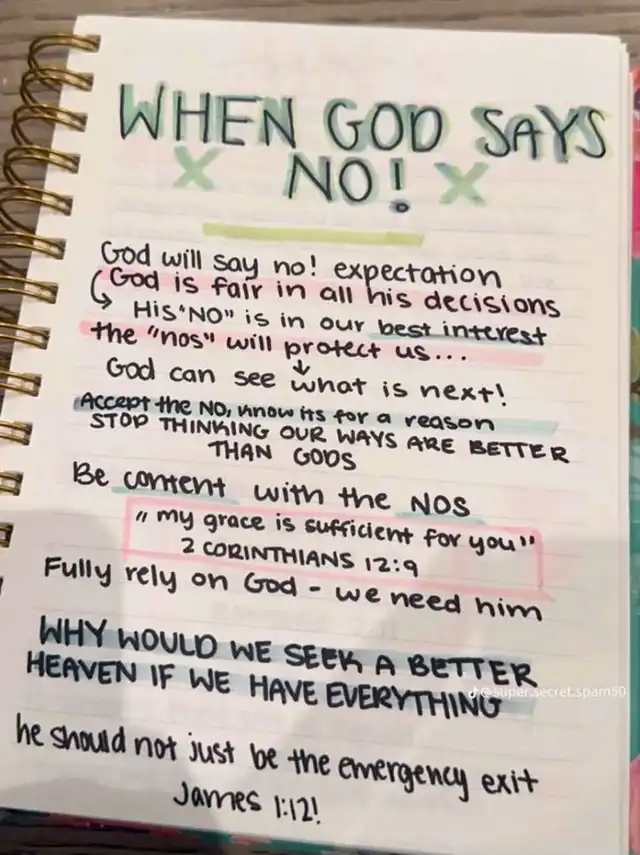 WHEN GOD SAYS
NO!
God will say no! expectation
God is fair in all his decisions
His "NO" is in our best interest
the "nos" will protect us...
God can see what is next!
Accept the NO, know its for a reason
STOP THINKING OUR WAYS ARE BETTER
THAN GODS
Be content with the NOS
"my grace is sufficient for you"
2 CORINTHIANS 12:9
Fully rely on God - we need him
WHY WOULD WE SEEK A BETTER
HEAVEN IF WE HAVE EVERYTHING
@super.secret.spam50
he should not just be the emergency exit
James 1:12!